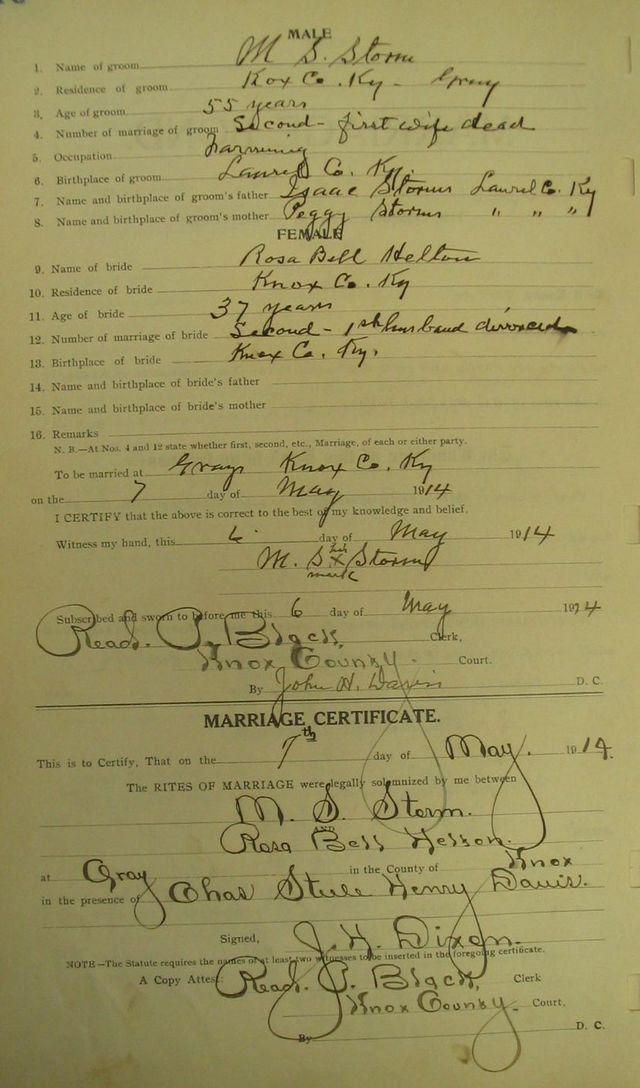 MALE
1. Name of groom M S. Storm
2. Residence of groom Kox Co. Ky - Gray
3. Age of groom 55 years
4. Number of marriage of groom Second - first wife dead
5. Occupation Farming
6. Birthplace of groom Laurel Co. Ky.
7. Name and birthplace of groom's father Isaac Storms Laurel Co. Ky
8. Name and birthplace of groom's mother Peggy Storms " " "
FEMALE
9. Name of bride Rosa Bell Helton
10. Residence of bride Knox Co. Ky
11. Age of bride 37 years
12. Number of marriage of bride Second - 1st husband divorced
13. Birthplace of bride Knox Co. Ky.
14. Name and birthplace of bride's father
15. Name and birthplace of bride's mother
16. Remarks
N. B.—At Nos. 4 and 12 state whether first, second, etc., Marriage, of each or either party.
To be married at Grays Knox Co. Ky
on the 7 day of May 1914
I CERTIFY that the above is correct to the best of my knowledge and belief.
Witness my hand, this 6 day of May 1914
M. S. his x mark Storm
Subscribed and sworn to before me this 6 day of May 1914
Read. P. Black, Clerk,
Knox County. Court.
By John H. Davis D. C.
MARRIAGE CERTIFICATE.
This is to Certify, That on the 7th day of May. 1914.
The RITES OF MARRIAGE were legally solemnized by me between
M. S. Storm.
AND
Rosa Bell Helson.
at Gray in the County of Knox
in the presence of Chas Steele Henry Davis.
Signed, J. H. Dixon.
NOTE—The Statute requires the names of at least two witnesses to be inserted in the foregoing certificate.
A Copy Attest: Read. P. Black, Clerk
Knox County. Court,
By D. C.